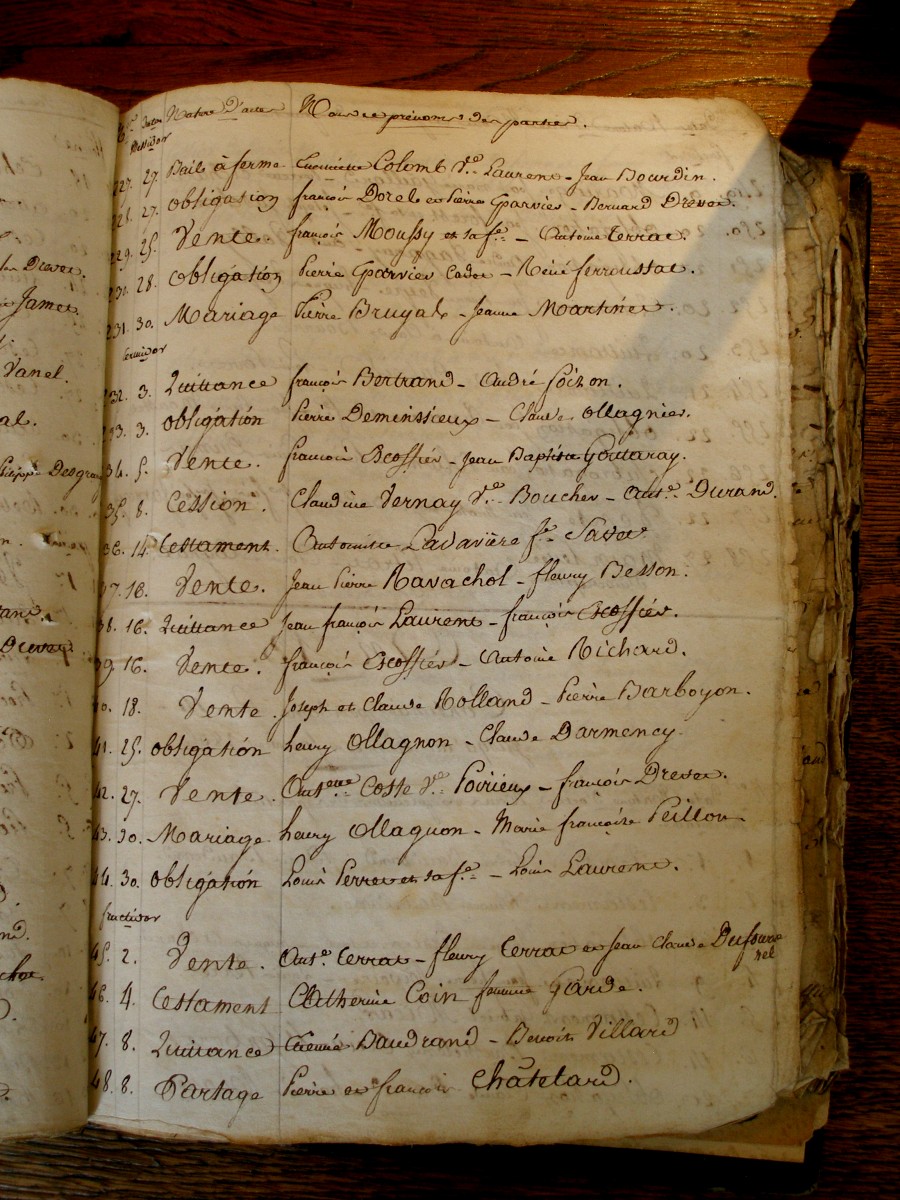 Drevet.
Jamet.
Vanel.
al.
philippe Desgran
Nos Dates Nature D'actes Noms et prénoms des parties.
Messidor
227. 27. Bail à ferme Colomb Ve. Laurent - Jean Bourdin.
228. 27. obligation françois Dorel et Pierre Garvier - Bernard Drevet.
229. 25. Vente. françois Moussy et sa fe. - Antoine Terrat.
230. 28. obligation Pierre Garvier Cadet - Réné ferroussat.
231. 30. Mariage Pierre Bruyal - Jeanne Martinet.
Termidor
232. 3. Quittance françois Bertrand - André Soizon.
233. 3. obligation Pierre Demeissieux - Claude Ollagnier.
34. 5. Vente. françois Escoffier - Jean Baptiste Goutaray.
35. 8. Cession. Claudine Vernay Ve. Boucher - Ante. Durand.
36. 14. Testament. Antoinette Ladavière fe. Savet
37. 16. Vente. Jean Pierre Ravachol - fleury Besson.
38. 16. Quittance Jean françois Laurent - françois Escoffier.
39. 16. Vente. françois Escoffier - Antoine Richard.
40. 18. Vente. Joseph et Claude Rolland - Pierre Barboyon.
41. 25. obligation henry Ollagnon - Claude Darmency.
42. 27. Vente. Coste Ve. Poirieux - françois Drevet.
43. 30. Mariage henry Ollagnon - Marie françoise Peillon.
44. 30. obligation Louis Perret et sa fe. - Louis Laurent.
fructidor
45. 2. Vente. Ante. Terrat - fleury Terrat et Jean Claude Dufournel
46. 4. Testament Catherine Coin femme Garde.
47. 8. Quittance Etienne Baudrand - Benoit Villard
48. 8. Partage Pierre et françois Châtelard.